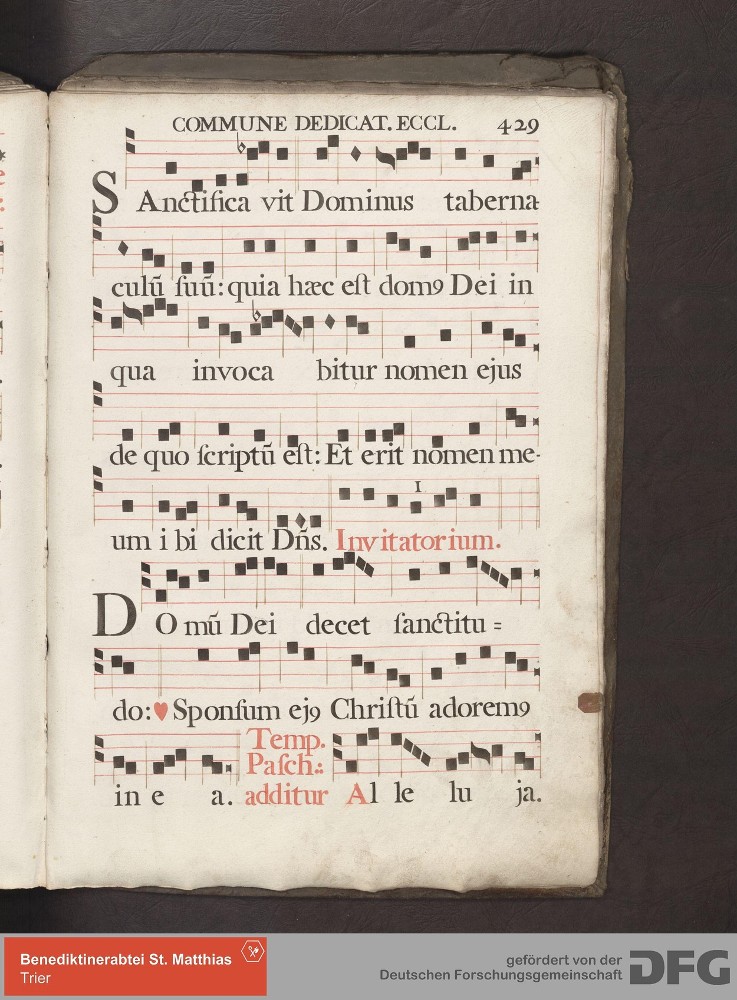 COMMUNE DEDICAT. ECCL. 429
SAnctifica vit Dominus taberna
culũ ſuũ: quia hæc eſt domꝰ Dei in
qua invoca bitur nomen ejus
de quo ſcriptũ eſt: Et erit nomen me-
1
um i bi dicit Dñs. Invitatorium.
DOmũ Dei decet ſanctitu =
do: ♥ Sponſum ejꝰ Chriſtũ adoremꝰ
in e a. Temp. Paſch.: additur Al le lu ja.
Benediktinerabtei St. Matthias
Trier
gefördert von der
Deutschen Forschungsgemeinschaft
DFG